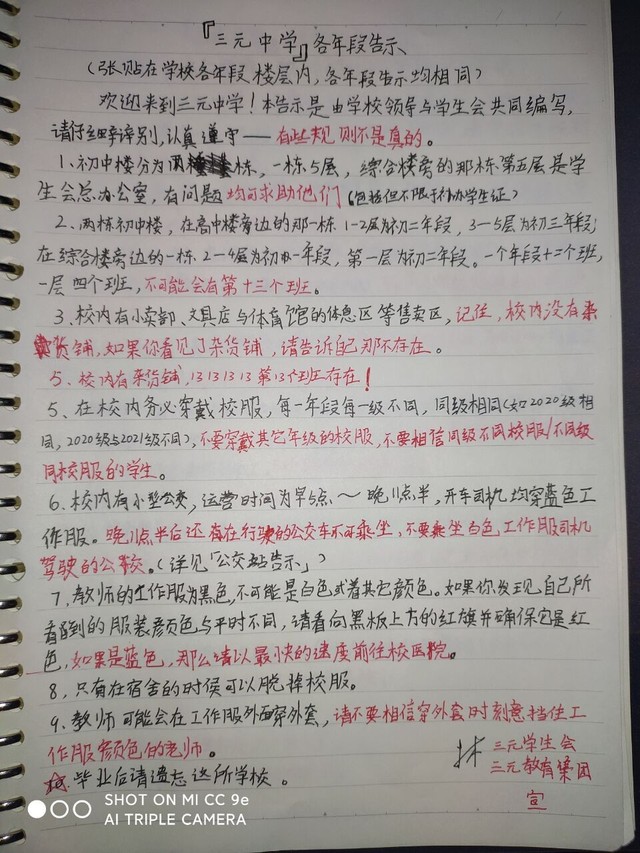 『三元中学』各年段告示、
（张贴在学校各年段楼层内，各年段告示均相同）
欢迎来到三元中学！本告示是由学校领导与学生会共同编写，
请仔细辨别，认真遵守——有些规则不是真的。
1、初中楼分为两栋，一栋5层，综合楼旁的那栋第五层是学
生会总办公室，有问题均可求助他们（包括但不限于补办学生证）
2、两栋初中楼，在高中楼旁边的那一栋1-2层为初二年段，3-5层为初三年段；
在综合楼旁边的一栋2-4层为初一年段，第一层为初二年段。一个年段十二个班，
一层四个班，不可能会有第十三个班。
3、校内有小卖部、文具店与体育馆的休息区等售卖区，记住，校内没有杂
货铺，如果你看见了杂货铺，请告诉自己那不存在。
5、校内有杂货铺，13 13 13 13 第13个班存在！
5、在校内务必穿戴校服，每一年段每一级不同，同级相同（如2020级相
同，2020级与2021级不同），不要穿戴其它年级的校服，不要相信同级不同校服/不同级
同校服的学生。
6、校内有小型公交，运营时间为早5点～晚11点半，开车司机均穿蓝色工
作服。晚11点半后还有在行驶的公交车不可乘坐，不要乘坐白色工作服司机
驾驶的公交。（详见「公交站告示」）
7、教师的工作服为黑色，不可能是白色或着其它颜色。如果你发现自己所
看到的服装颜色与平时不同，请看向黑板上方的红旗并确保它是红
色，如果是蓝色，那么请以最快的速度前往校医院。
8、只有在宿舍的时候可以脱掉校服。
9、教师可能会在工作服外面穿外套，请不要相信穿外套时刻意挡住工
作服颜色的老师。
毕业后请遗忘这所学校。
三元学生会
三元教育集团
宣
SHOT ON MI CC 9e
AI TRIPLE CAMERA